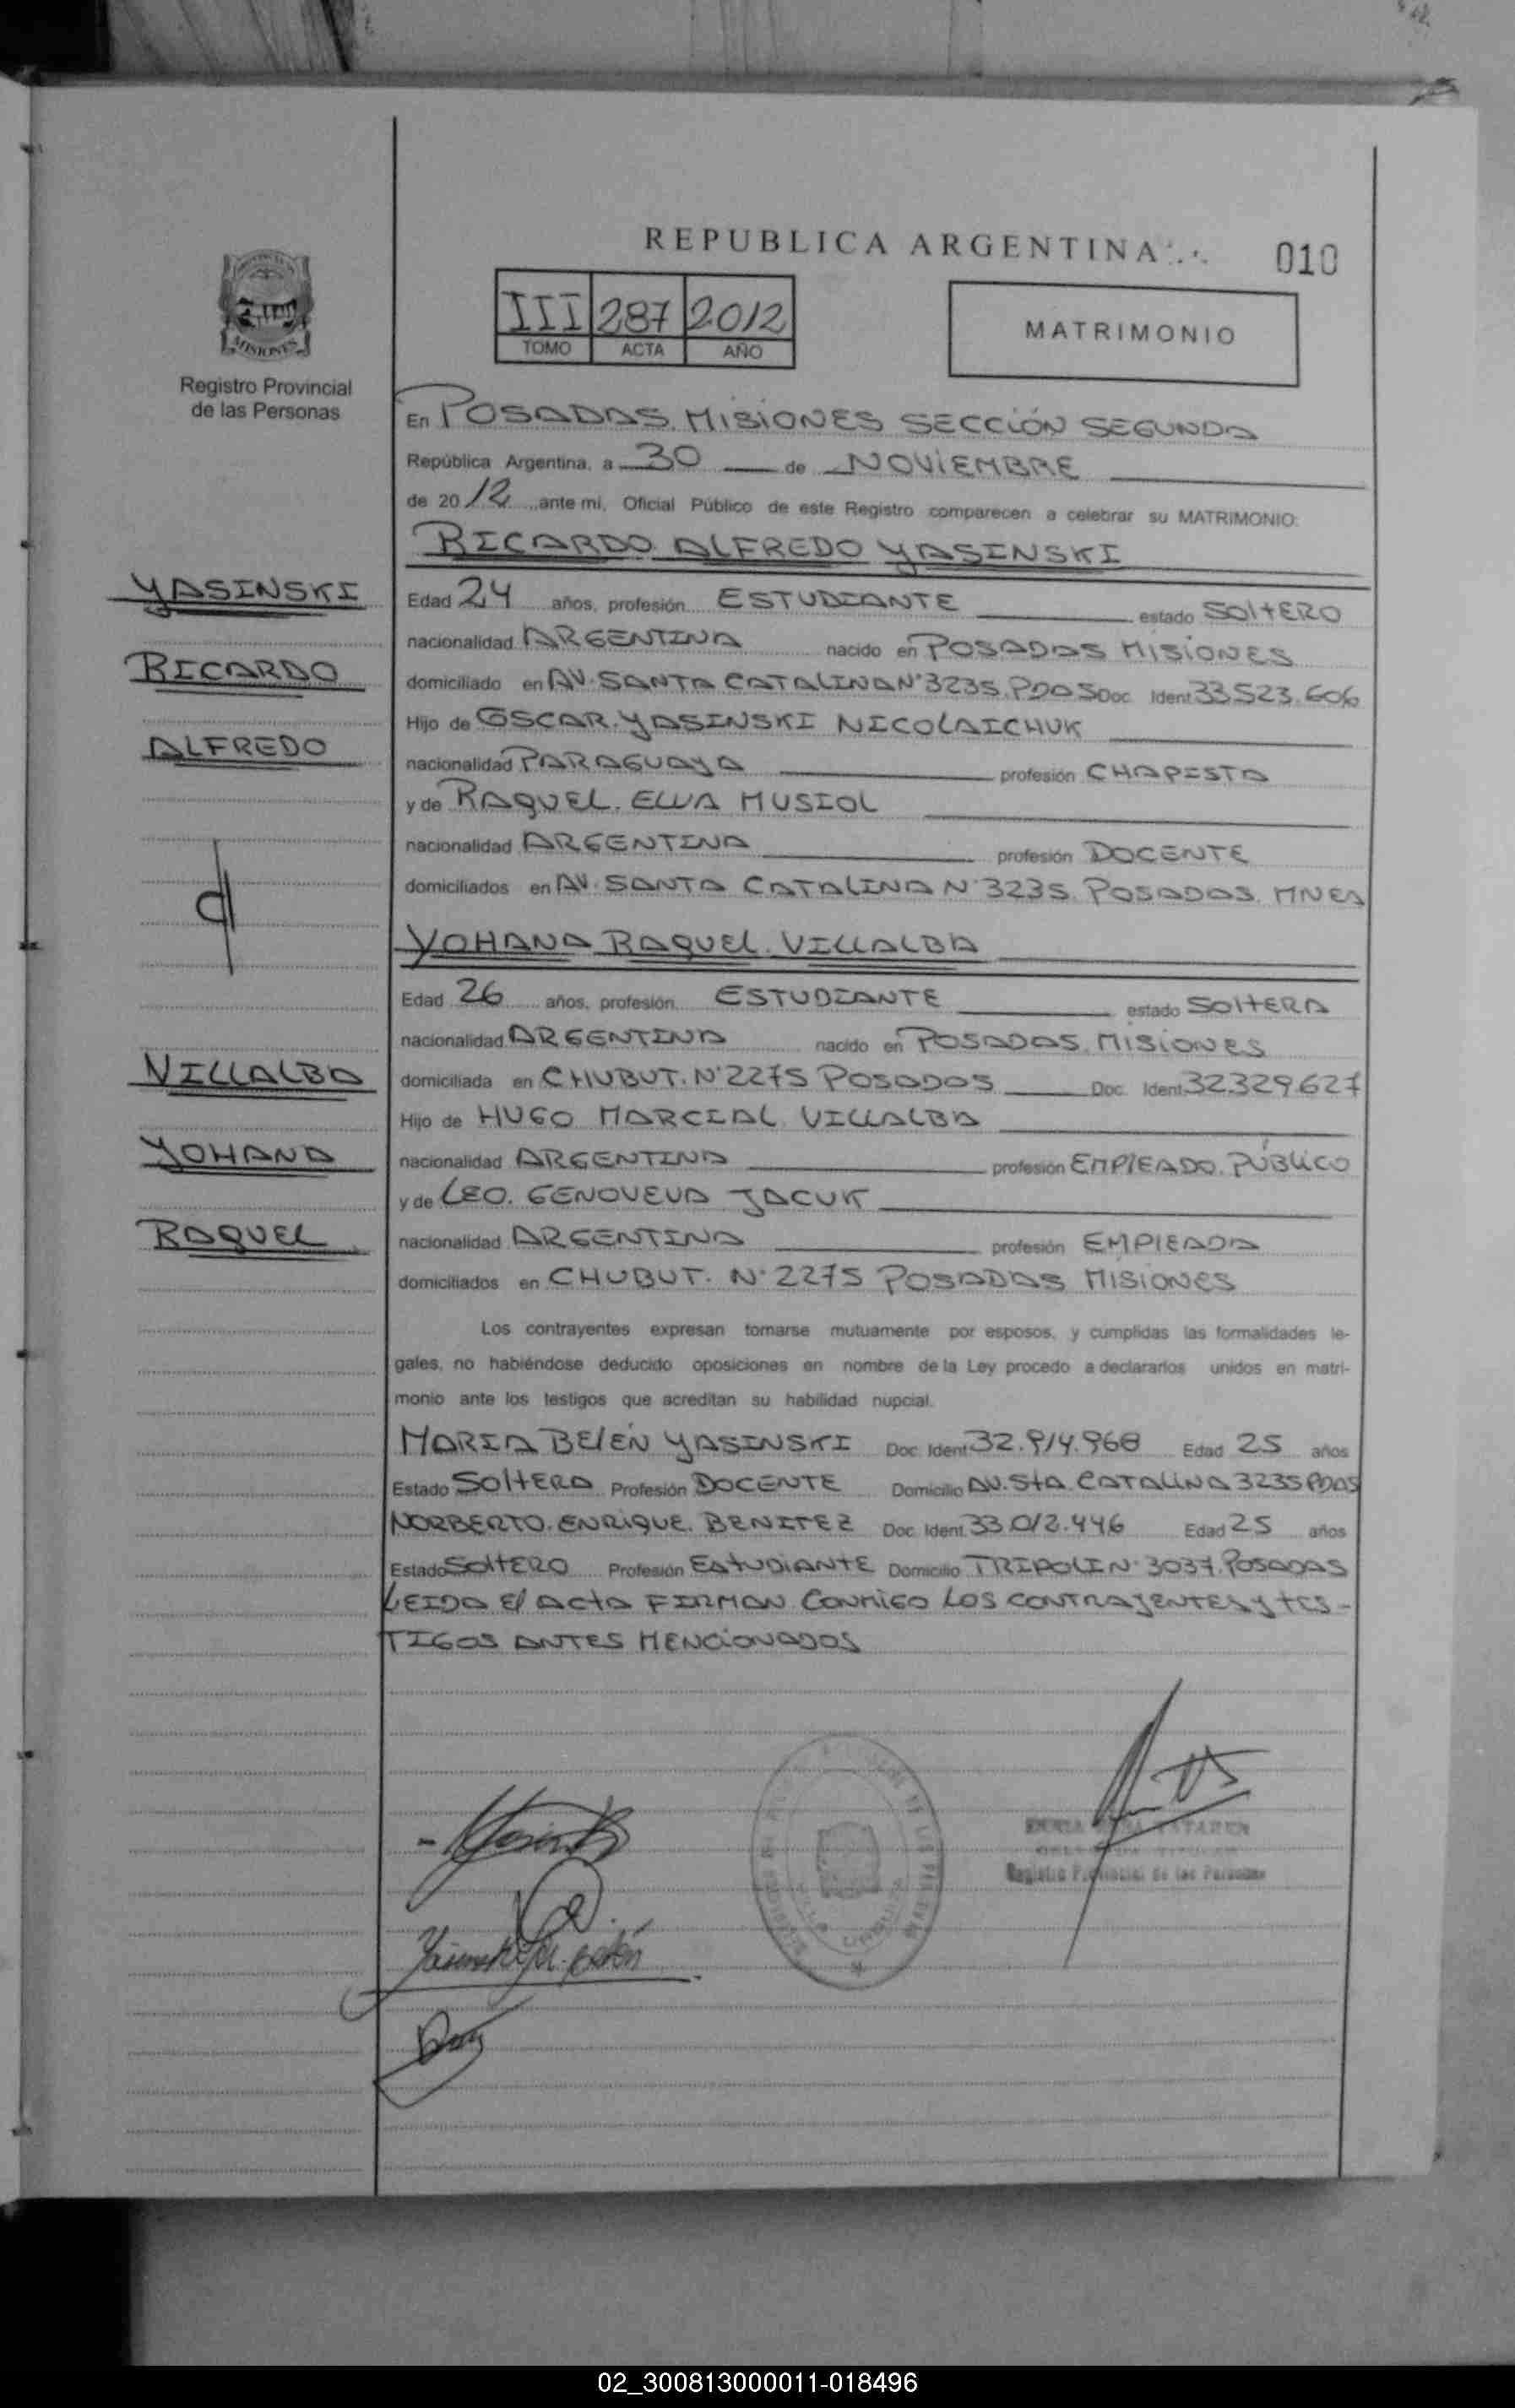 REPUBLICA ARGENTINA
010
III 287 2012
TOMO ACTA AÑO
MATRIMONIO
MISIONES
Registro Provincial
de las Personas
En POSADAS. MISIONES SECCIÓN SEGUNDA
República Argentina, a 30 de NOVIEMBRE
de 2012 ante mi, Oficial Público de este Registro comparecen a celebrar su MATRIMONIO:
RICARDO ALFREDO YASINSKI
YASINSKI
Edad 24 años, profesión ESTUDIANTE estado SOLTERO
nacionalidad ARGENTINA nacido en POSADAS MISIONES
RICARDO
domiciliado en AV. SANTA CATALINA N° 3235. PDAS Doc. Ident 33.523.606
Hijo de OSCAR. YASINSKI NICOLAICHUK
ALFREDO
nacionalidad PARAGUAYA profesión CHAPISTA
y de RAQUEL. ELVA MUSIOL
nacionalidad ARGENTINA profesión DOCENTE
domiciliados en AV. SANTA CATALINA N° 3235. POSADAS. MNES
YOHANA RAQUEL. VILLALBA
Edad 26 años, profesión ESTUDIANTE estado SOLTERA
nacionalidad ARGENTINA nacido en POSADAS. MISIONES
VILLALBA
domiciliada en CHUBUT. N° 2275 POSADAS Doc. Ident 32.329.627
Hijo de HUGO MARCIAL VILLALBA
YOHANA
nacionalidad ARGENTINA profesión EMPLEADO. PÚBLICO
y de LEO. GENOVEVA JACUK
RAQUEL
nacionalidad ARGENTINA profesión EMPLEADA
domiciliados en CHUBUT. N° 2275 POSADAS MISIONES
Los contrayentes expresan tomarse mutuamente por esposos, y cumplidas las formalidades le-
gales, no habiéndose deducido oposiciones en nombre de la Ley procedo a declararlos unidos en matri-
monio ante los testigos que acreditan su habilidad nupcial.
MARIA BELÉN YASINSKI Doc. Ident 32.914.968 Edad 25 años
Estado SOLTERA Profesión DOCENTE Domicilio AV. STA. CATALINA 3235 PDAS
NORBERTO. ENRIQUE. BENITEZ Doc. Ident. 33.012.446 Edad 25 años
Estado SOLTERO Profesión ESTUDIANTE Domicilio TRIPOLI N° 3037. POSADAS
LEIDA El ACTA FIRMAN CONMIGO LOS CONTRAYENTES y TES-
TIGOS ANTES MENCIONADOS
Registro Provincial de las Personas
02_300813000011-018496